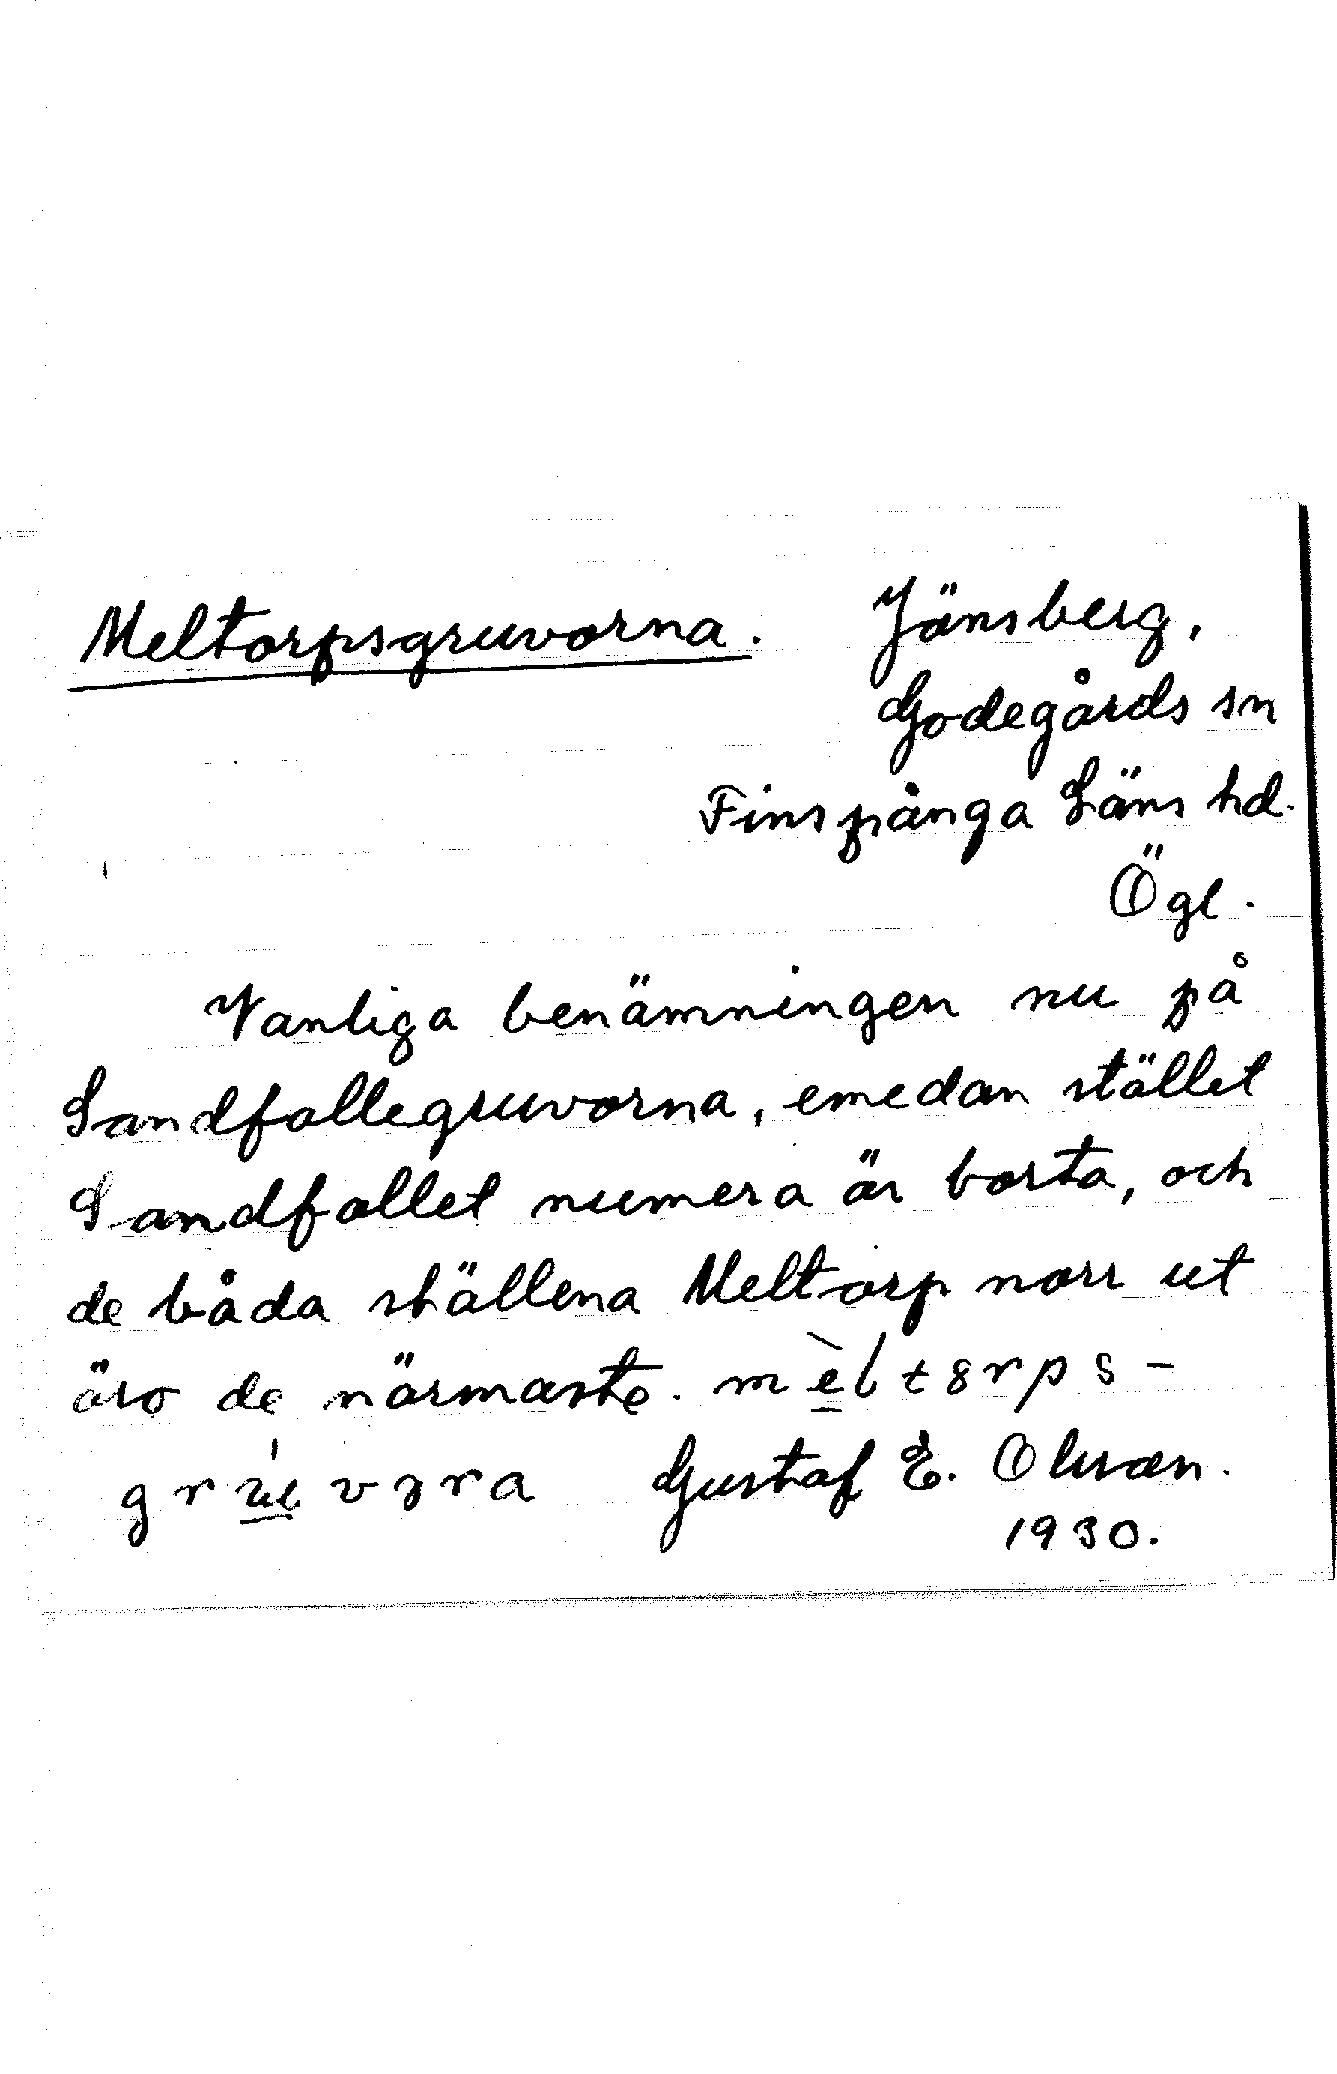 Meltorpsgruvorna. Jänsberg,
Godegårds sn
Finspånga Läns hd.
Ögl.
Vanliga benämningen nu på
Sandfallegruvorna, emedan stället
Sandfallet numera är borta, och
de båda ställena Meltorp norr ut
äro de närmaste.
Gustaf E. Olsson.
1930.